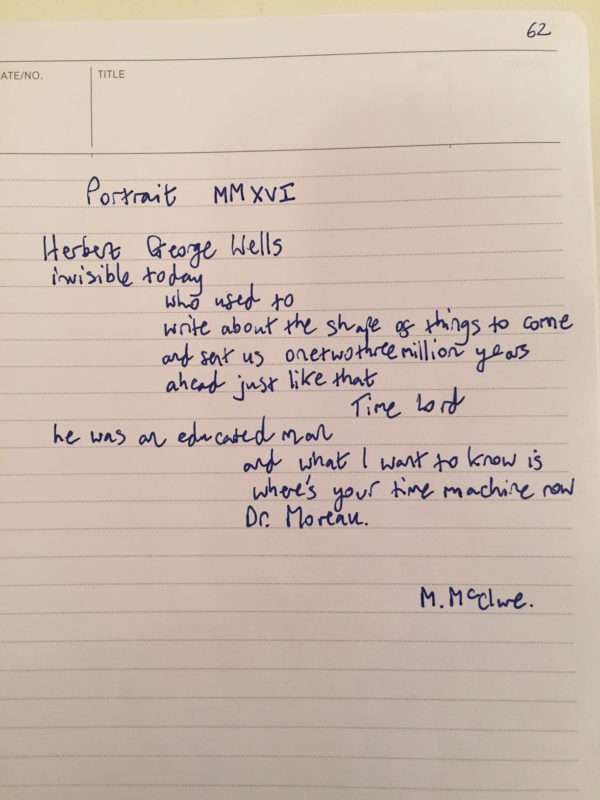 62
ATE/NO.
TITLE
Portrait MMXVI
Herbert George Wells
invisible today
who used to
write about the shape of things to come
and sent us onetwothreemillion years
ahead just like that
Time Lord
he was an educated man
and what I want to know is
where's your time machine now
Dr. Moreau.
M. McClure.